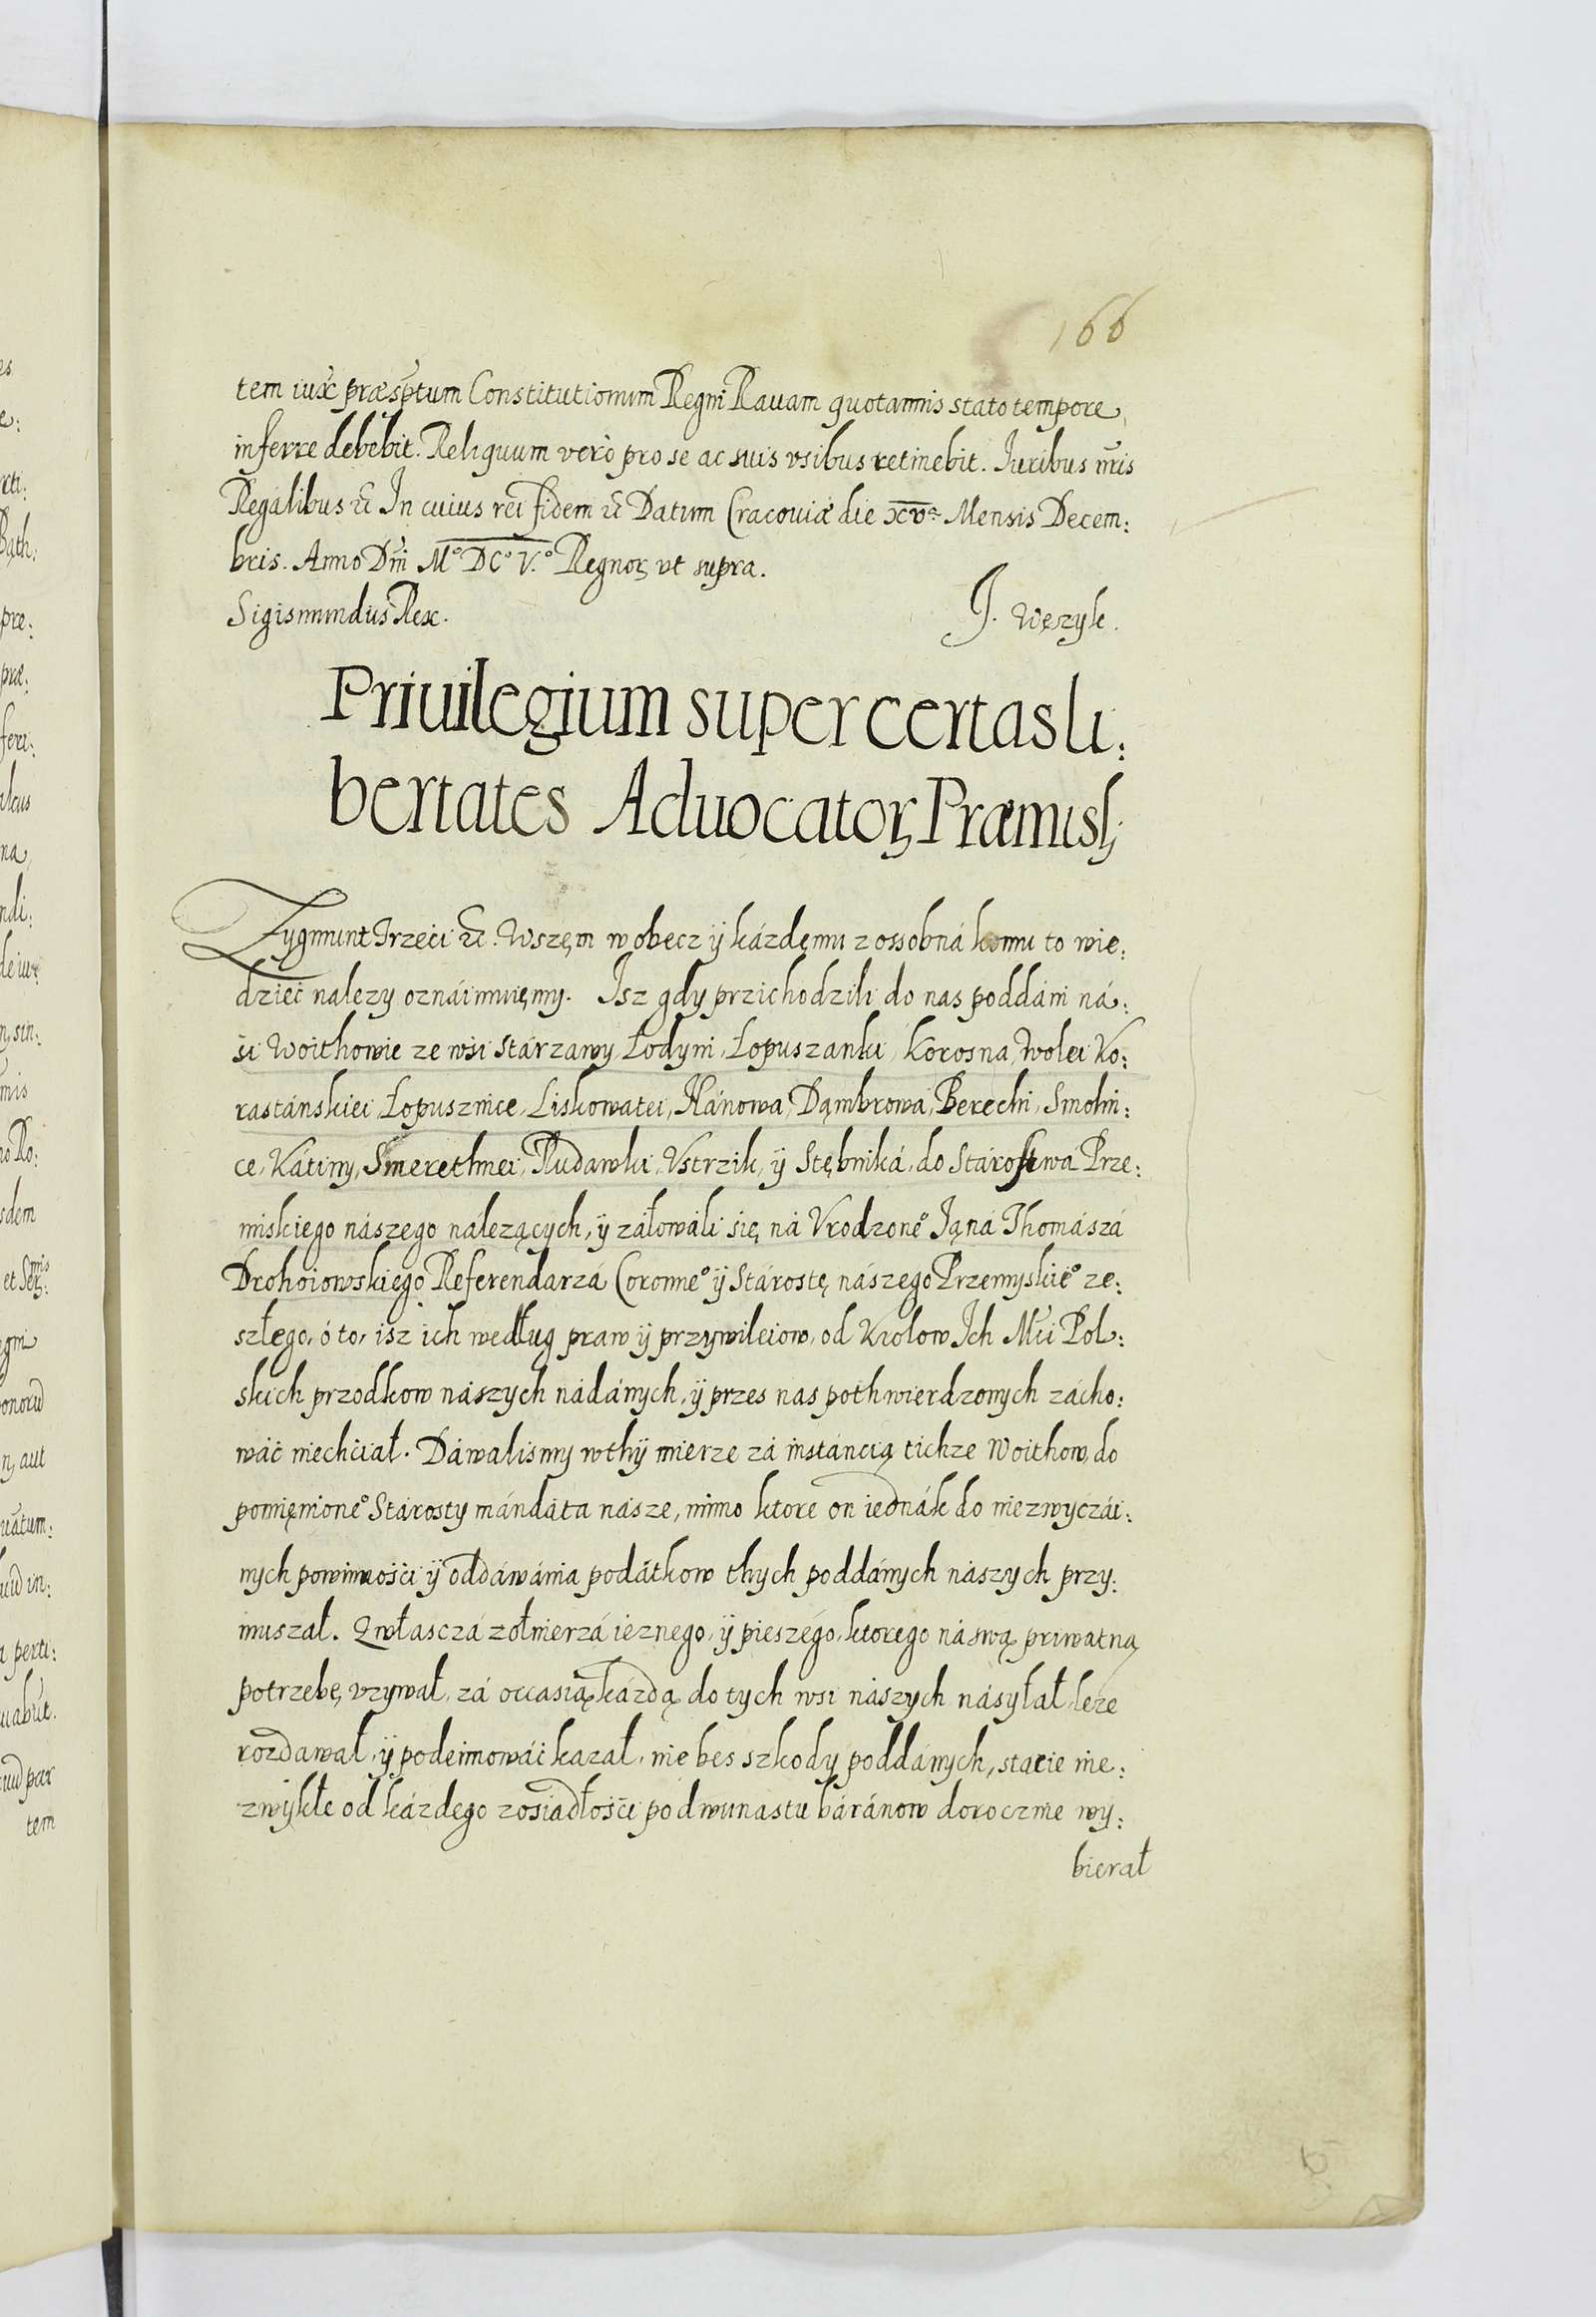 166
tem iux̃ præsp̃tum Constitutionum Regni Rauam quotannis stato tempore
inferre debebit. Reliquum verò pro se ac suis vsibus retinebit. Iuribus nr̃is
Regalibus &c̃ In cuius rei fidem &c̃ Datum Cracouiæ die xvᵃ Mensis Decem:
bris. Anno Dñi M° DC° V.° Regnoꝝ vt supra.
Sigismundus Rex. J. Wężyk.
Priuilegium super certas li:
bertates Aduocatoꝝ Præmisl;
Zygmunt Trzeci &c̃. Wszęm wobecz ÿ káżdęmu z ossobná komu to wie:
dzieć nalezy oznáimuięmy. Isz gdy przichodzili do nas poddáni ná:
śi Woithowie ze wśi Stárzawy, Łodyni, Łopuszanki, Korosna, Wolei Ko:
rastánskiei, Łopusznice, Liskowatei, Hánowa, Dąmbrowa, Berechi, Smolni:
ce, Kátiny, Smerethnei, Rudawki, Vstrzik, ÿ Stębniká, do Stárostwa Prze:
miskiego nászego nálezących, ÿ záłowáli się, ná Vrodzone° Jąná Thomászá
Drohoiowskiego Referendarzá Coronne° ÿ Stárostę nászego Przemyskie° ze:
szłego, ó to, isz ich według praw ÿ przywileiow, od Krolow Ich Mći Pol:
skich przodkow nászych nádánych, ÿ przes nas pothwierdzonych zácho:
wáć niechćiał. Dáwalismy wthÿ mierze zá instáncią tichze Woithow, do
pomięnione° Stárosty mándáta násze, mimo ktore on iednák do niezwyczái:
nych powinnośći ÿ oddáwánia podátkow thych poddánych nászych przy:
muszał. Zwłasczá zołnierzá ieznego, ÿ pieszégo, ktorego ná swą priwatną
potrzebę, vzywał, zá occasią káżdą do tych wsi nászych násyłał, leze
rozdawał, ÿ podeimowáć kazał, nie bes szkody poddánych, stacie nie:
zwÿkłe od káżdego z osiadłośći po dwunastu báránow doroczne wÿ:
bierał